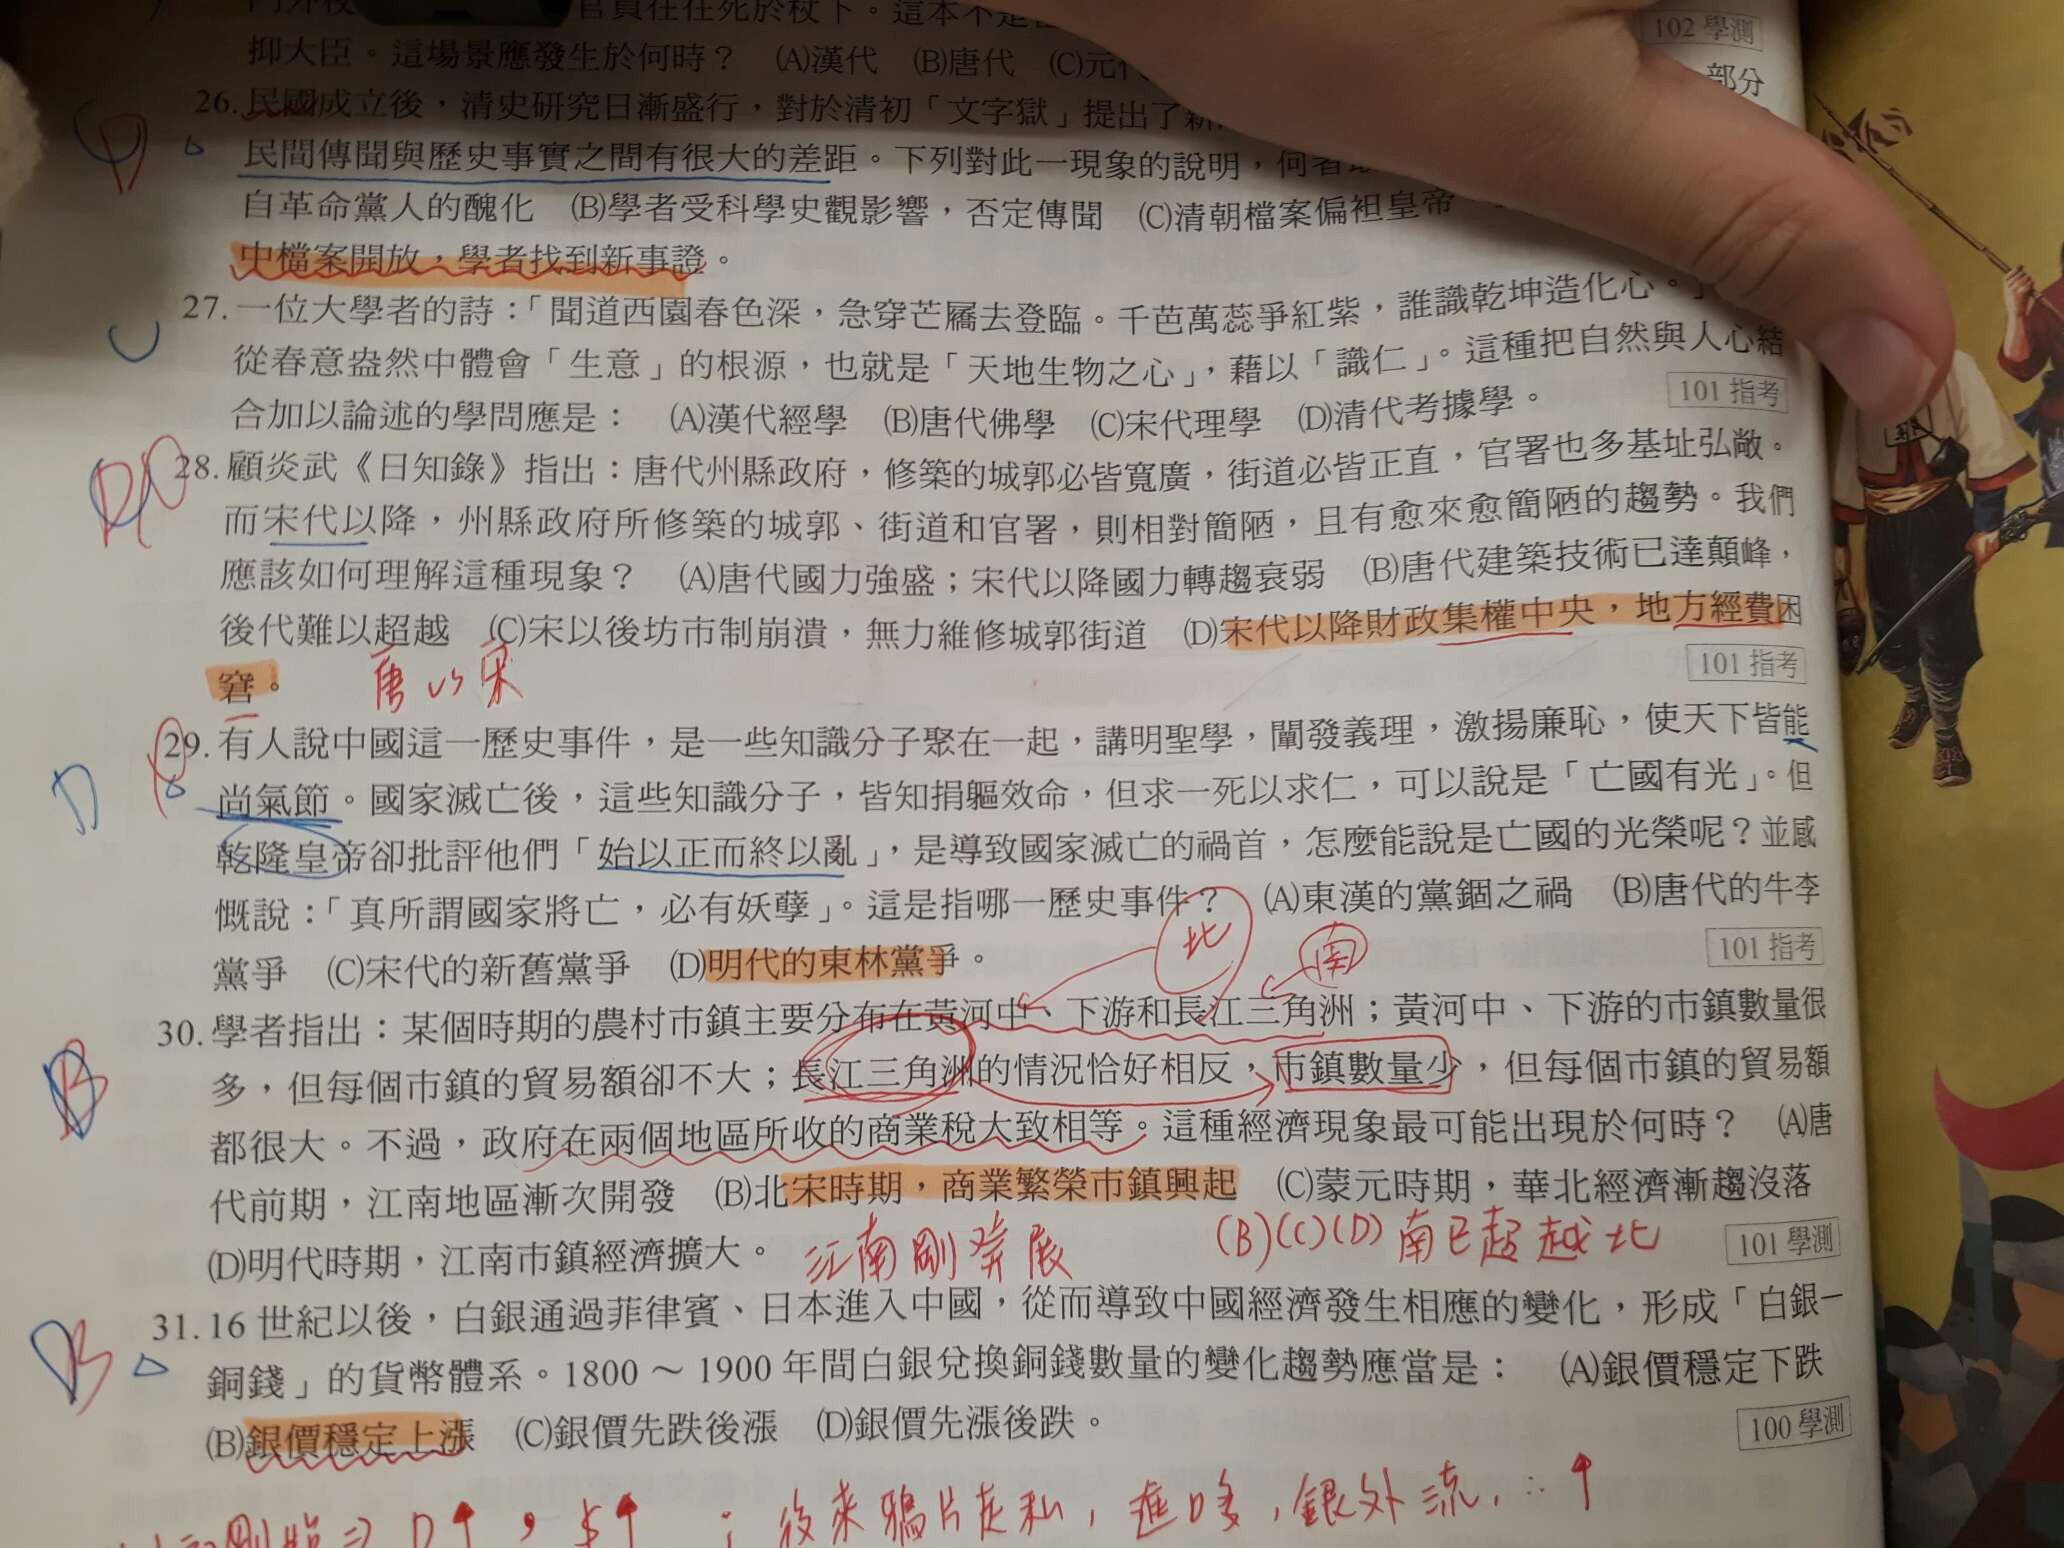 官員往往死於杖下。這本不是
抑大臣。這場景應發生於何時？ (A)漢代 (B)唐代 (C)元代
102 學測
部分
26. 民國成立後，清史研究日漸盛行，對於清初「文字獄」提出了新
民間傳聞與歷史事實之間有很大的差距。下列對此一現象的說明，何者
自革命黨人的醜化 (B)學者受科學史觀影響，否定傳聞 (C)清朝檔案偏袒皇帝
中檔案開放，學者找到新事證。
27. 一位大學者的詩：「聞道西園春色深，急穿芒屩去登臨。千芭萬蕊爭紅紫，誰識乾坤造化心。」
從春意盎然中體會「生意」的根源，也就是「天地生物之心」，藉以「識仁」。這種把自然與人心結
合加以論述的學問應是： (A)漢代經學 (B)唐代佛學 (C)宋代理學 (D)清代考據學。
101 指考
28. 顧炎武《日知錄》指出：唐代州縣政府，修築的城郭必皆寬廣，街道必皆正直，官署也多基址弘敞。
而宋代以降，州縣政府所修築的城郭、街道和官署，則相對簡陋，且有愈來愈簡陋的趨勢。我們
應該如何理解這種現象？ (A)唐代國力強盛；宋代以降國力轉趨衰弱 (B)唐代建築技術已達顛峰，
後代難以超越 (C)宋以後坊市制崩潰，無力維修城郭街道 (D)宋代以降財政集權中央，地方經費困
窘。
101 指考
29. 有人說中國這一歷史事件，是一些知識分子聚在一起，講明聖學，闡發義理，激揚廉恥，使天下皆能
尚氣節。國家滅亡後，這些知識分子，皆知捐軀效命，但求一死以求仁，可以說是「亡國有光」。但
乾隆皇帝卻批評他們「始以正而終以亂」，是導致國家滅亡的禍首，怎麼能說是亡國的光榮呢？並感
慨說：「真所謂國家將亡，必有妖孽」。這是指哪一歷史事件？ (A)東漢的黨錮之禍 (B)唐代的牛李
黨爭 (C)宋代的新舊黨爭 (D)明代的東林黨爭。
101 指考
北
南
30. 學者指出：某個時期的農村市鎮主要分布在黃河中、下游和長江三角洲；黃河中、下游的市鎮數量很
多，但每個市鎮的貿易額卻不大；長江三角洲的情況恰好相反，市鎮數量少，但每個市鎮的貿易額
都很大。不過，政府在兩個地區所收的商業稅大致相等。這種經濟現象最可能出現於何時？ (A)唐
代前期，江南地區漸次開發 (B)北宋時期，商業繁榮市鎮興起 (C)蒙元時期，華北經濟漸趨沒落
(D)明代時期，江南市鎮經濟擴大。
江南剛發展
(B)(C)(D)南已超越北
101 學測
31. 16 世紀以後，白銀通過菲律賓、日本進入中國，從而導致中國經濟發生相應的變化，形成「白銀—
銅錢」的貨幣體系。1800～1900 年間白銀兌換銅錢數量的變化趨勢應當是： (A)銀價穩定下跌
(B)銀價穩定上漲 (C)銀價先跌後漲 (D)銀價先漲後跌。
100 學測
後來鴉片走私，進口多，銀外流，∴↑